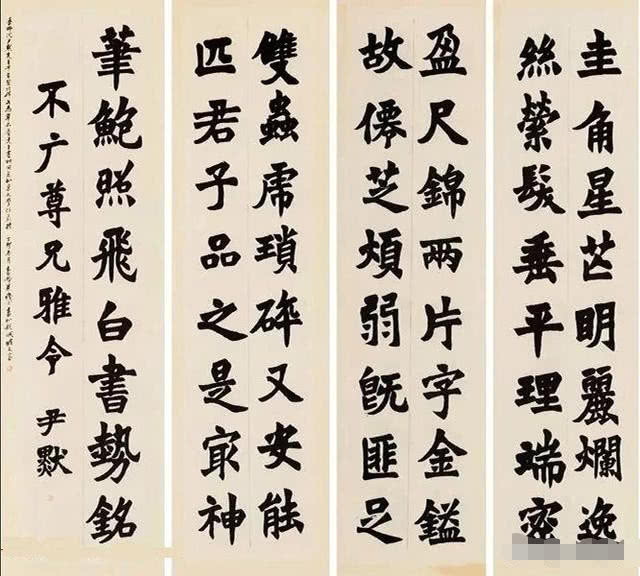 圭角星芒明麗爛逸
絲縈髮垂平理端密
盈尺錦兩片字金鎰
故僊芝煩弱旣匪足
雙蟲虎瑣碎又安能
匹君子品之是冣神
筆鮑照飛白書勢銘
不广尊兄雅令 尹默